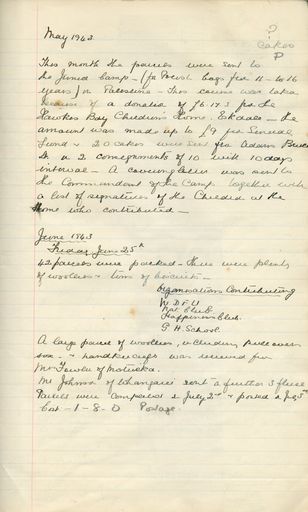 ?
Cakes
P
May 1943
This month the parcels were sent to
the Juvenil Camp - (for Polish boys fr 11 - to 16
years) in Palestine - This course was taken
because of a donation of £6.17.3 fr the
Hawkes Bay Childrens Home. Eskdale - the
amount was made up to £9 fr General
Fund & 20 cakes were sent fr Adams Bruce
Lt in 2 consignments of 10 with 10 days
interval - A covering letter was sent to
the Commandant of the Camp together with
a list of signatures of the Children at the
Home who contributed -
June 1943
Friday June 25th
42 parcels were packed - there were plenty
of woollens & tins of biscuits -
Organisations Contributing
W D F U
Nat Club
Happiness Club.
G. H School.
A large parcel of woollens, including pullovers
& handkerchiefs was received from
Mrs Fowler of Motueka.
Mr Johnson of Whangarei sent a further 3
Parcels were completed 2 July 2nd & posted July 5th
Cost - 1 - 8 - 0 Postage.